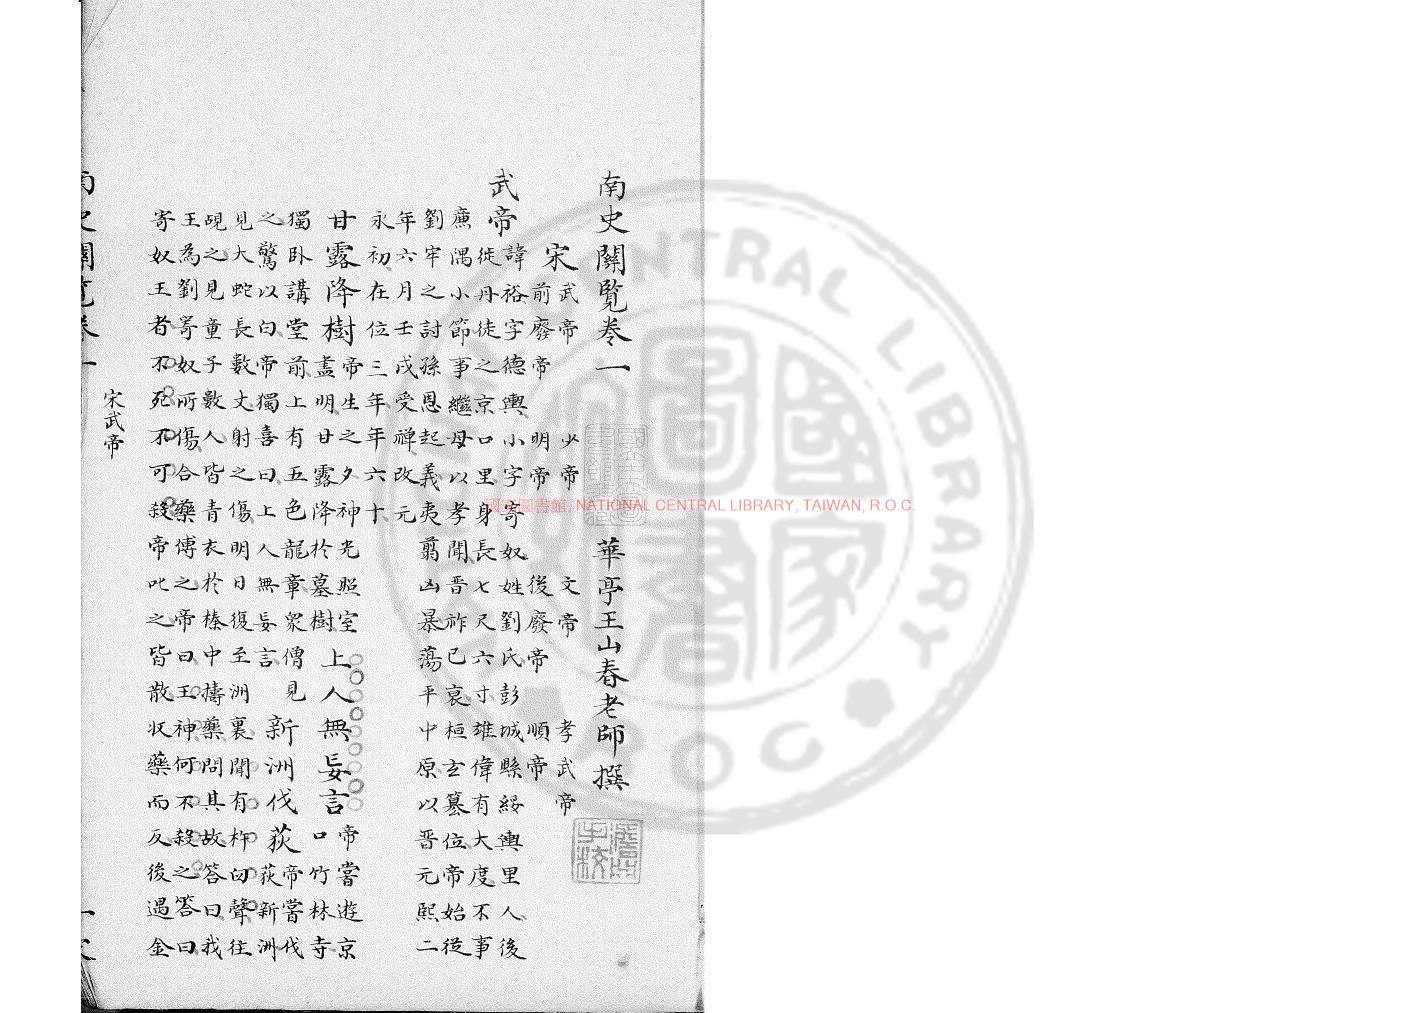 南史關覧巻一 華亭王山春老師撰
宋 武帝 少帝 文帝 孝武帝
前廢帝 明帝 後廢帝 順帝
武帝 諱裕字德輿小字寄奴姓劉氏彭城縣綏輿里人後
徙丹徒之京口里身長七尺六寸雄偉有大度不事
廉隅小節事繼母以孝聞晋祚已哀桓玄篡位帝始從
劉牢之討孫恩起義夷翦凶暴蕩平中原以晋元熙二
年六月壬戌受禅改元
永初在位三年年六十
甘露降樹 帝生之夕神光照室盡明甘露降於墓樹 上人無妄言 帝嘗遊京口竹林寺
獨卧講堂前上有五色龍章衆僧見之驚以白帝獨喜曰上人無妄言 新洲伐荻 帝嘗伐荻新洲
見大蛇長數丈射之傷明日復至洲裏聞有杵臼聲往
覘之見童子數人皆青衣於榛中擣藥問其故答曰我
王為劉寄奴所傷合藥傅之帝曰王神何不殺之答曰
寄奴王者不死不可殺帝叱之皆散収藥而反後遇金
宋武帝
南史關覧巻一
國家圖書館, NATIONAL CENTRAL LIBRARY, TAIWAN, R.O.C.
國家圖書館
NATIONAL CENTRAL LIBRARY
ROC